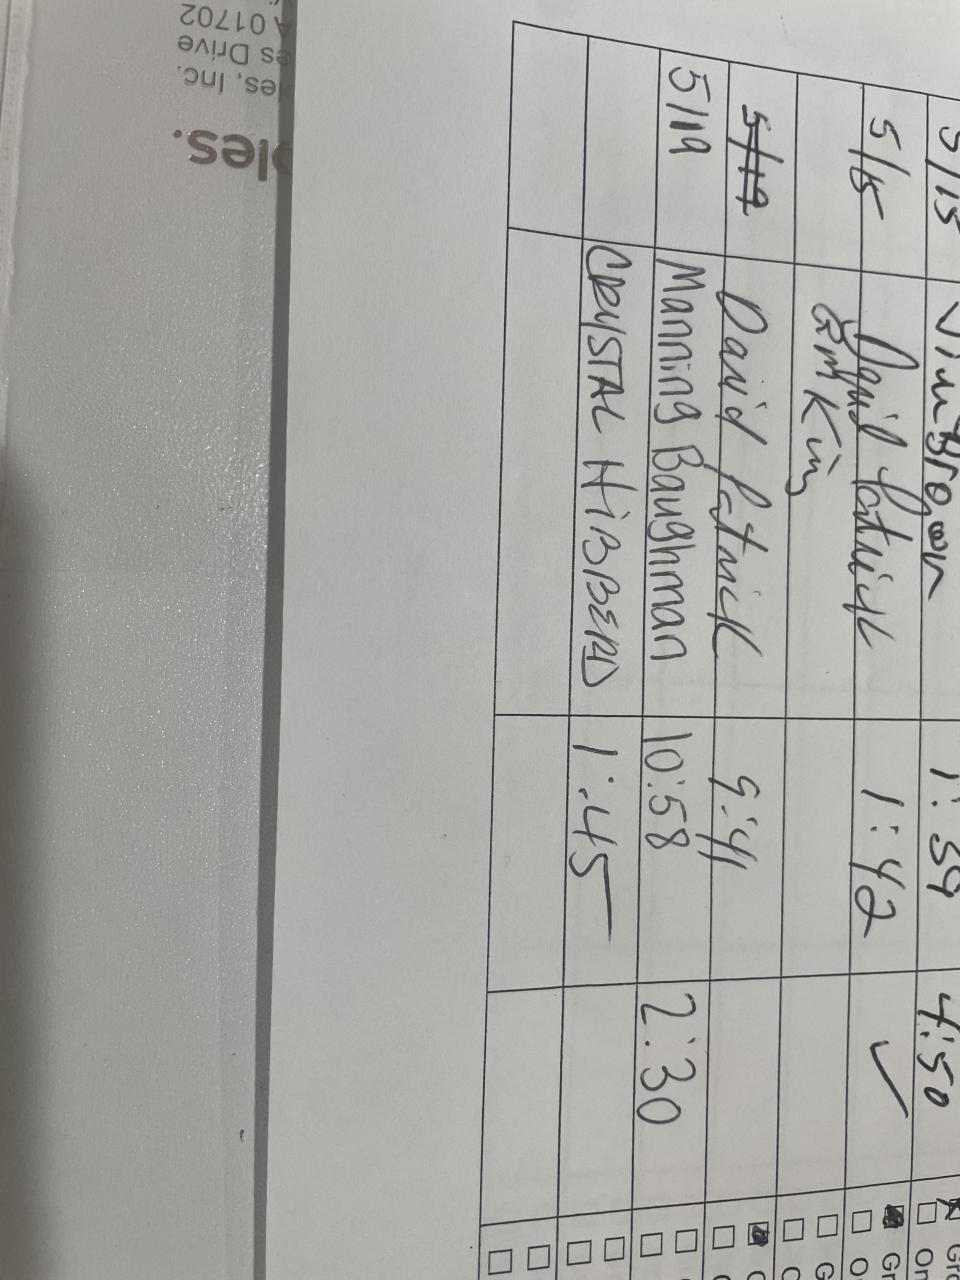 5/15 Jim Brown 1:39 4:50
5/15 David Patrick 1:42 ✓
Kim
5/19 David Patrick 9:41
5/19 Manning Baughman 10:58 2:30
CRYSTAL HIBBERD 1:45
les.
les, Inc.
es Drive
A 01702